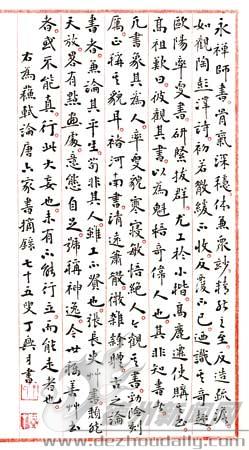 永禪師書骨氣深穩體兼眾妙精能之至返造疏澹
如觀陶彭澤詩初若散緩不收反覆不已迺識其奇趣
歐陽率更書妍緊拔群尤工於小楷高麗遣使購其書
高祖歎曰彼觀其書以為魁梧奇偉人也此非知書者
凡書象其為人率更貌寒寢敏悟絕人今觀其書勁險刻
厲正稱其貌耳褚河南書清遠蕭散微雜隸體古之論
書者兼論其平生苟非其人雖工不貴也張長史草書頹然
天放略有點畫處意態自足號稱神逸今世稱善草書
者或不能真行此大妄也未有不能行立而能走者也
右為蘇軾論唐六家書摘錄 七十五叟丁書
www.dezhoudaily.com